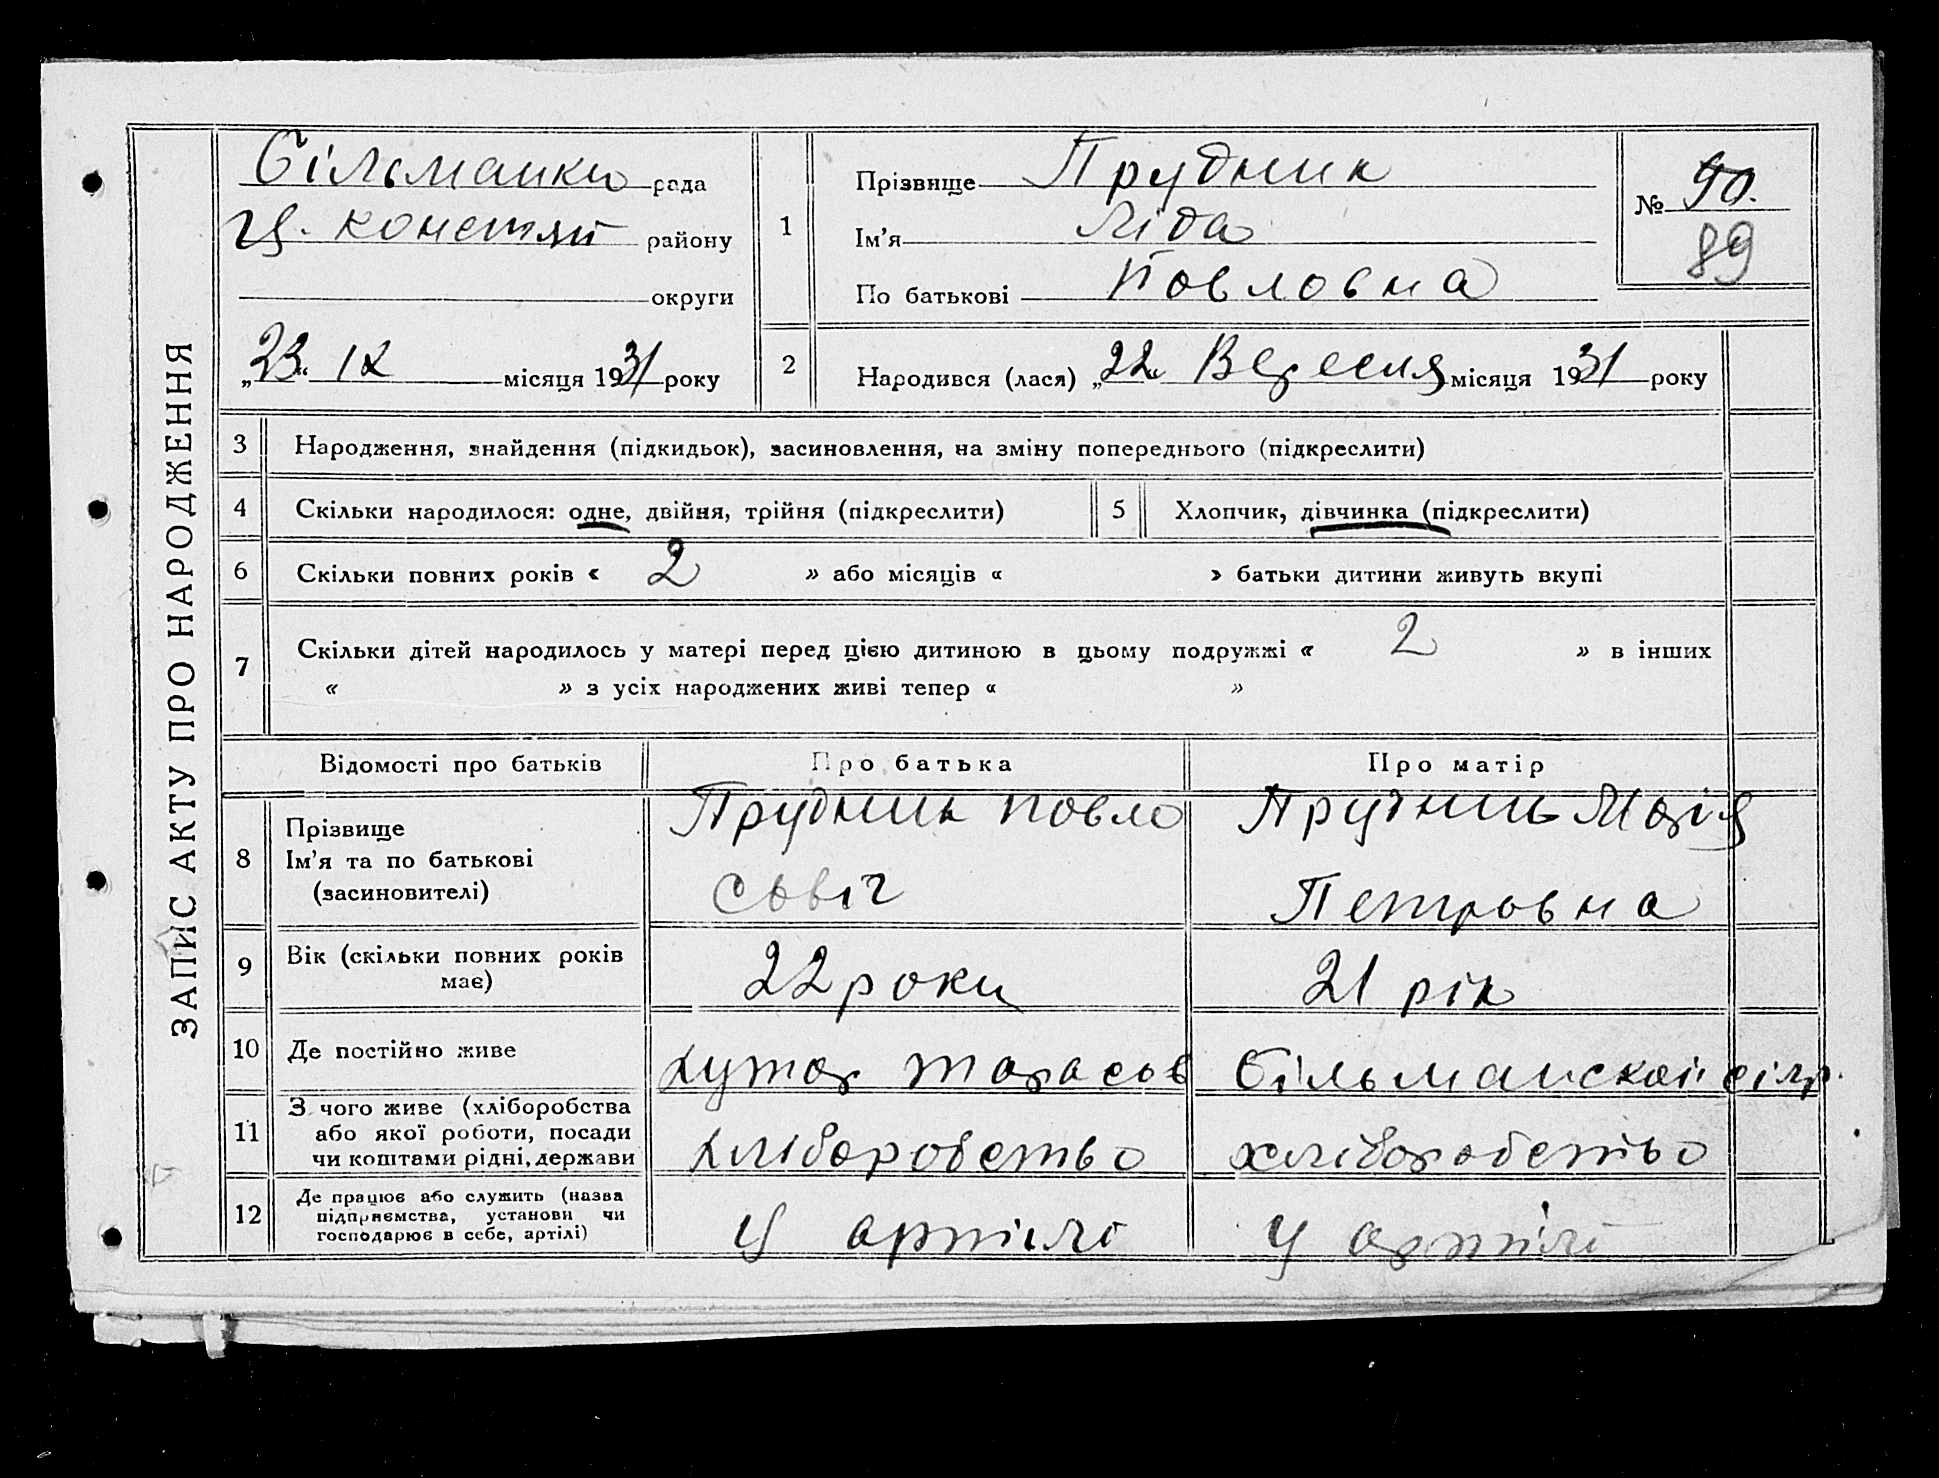 ЗАПИС АКТУ ПРО НАРОДЖЕННЯ
Більманки рада
Ц. Констян району
округи
„23“ IX місяця 1931 року
1
Прізвище Прудник
Ім'я Ліда
По батькові Повловна
№ 90.
89
2
Народився (лася) „22“ Вересня місяця 1931 року
3 Народження, знайдення (підкидьок), засиновлення, на зміну попереднього (підкреслити)
4 Скільки народилося: одне, двійня, трійня (підкреслити) 5 Хлопчик, дівчинка (підкреслити)
6 Скільки повних років « 2 » або місяців « » батьки дитини живуть вкупі
7 Скільки дітей народилось у матері перед цією дитиною в цьому подружжі « 2 » в інших
« » з усіх народжених живі тепер « »
Відомості про батьків Про батька Про матір
8 Прізвище
Ім'я та по батькові
(засиновителі)
Прудник Повло
Прудник Марія
Петровна
9 Вік (скільки повних років
має)
22 роки 21 рік
10 Де постійно живе хутор Тарасов Більманскої сілр.
11 З чого живе (хліборобства
або якої роботи, посади
чи коштами рідні, держави
хліборобство хліборобство
12 Де працює або служить (назва
підприємства, установи чи
господарює в себе, артілі)
У артілі У артілі